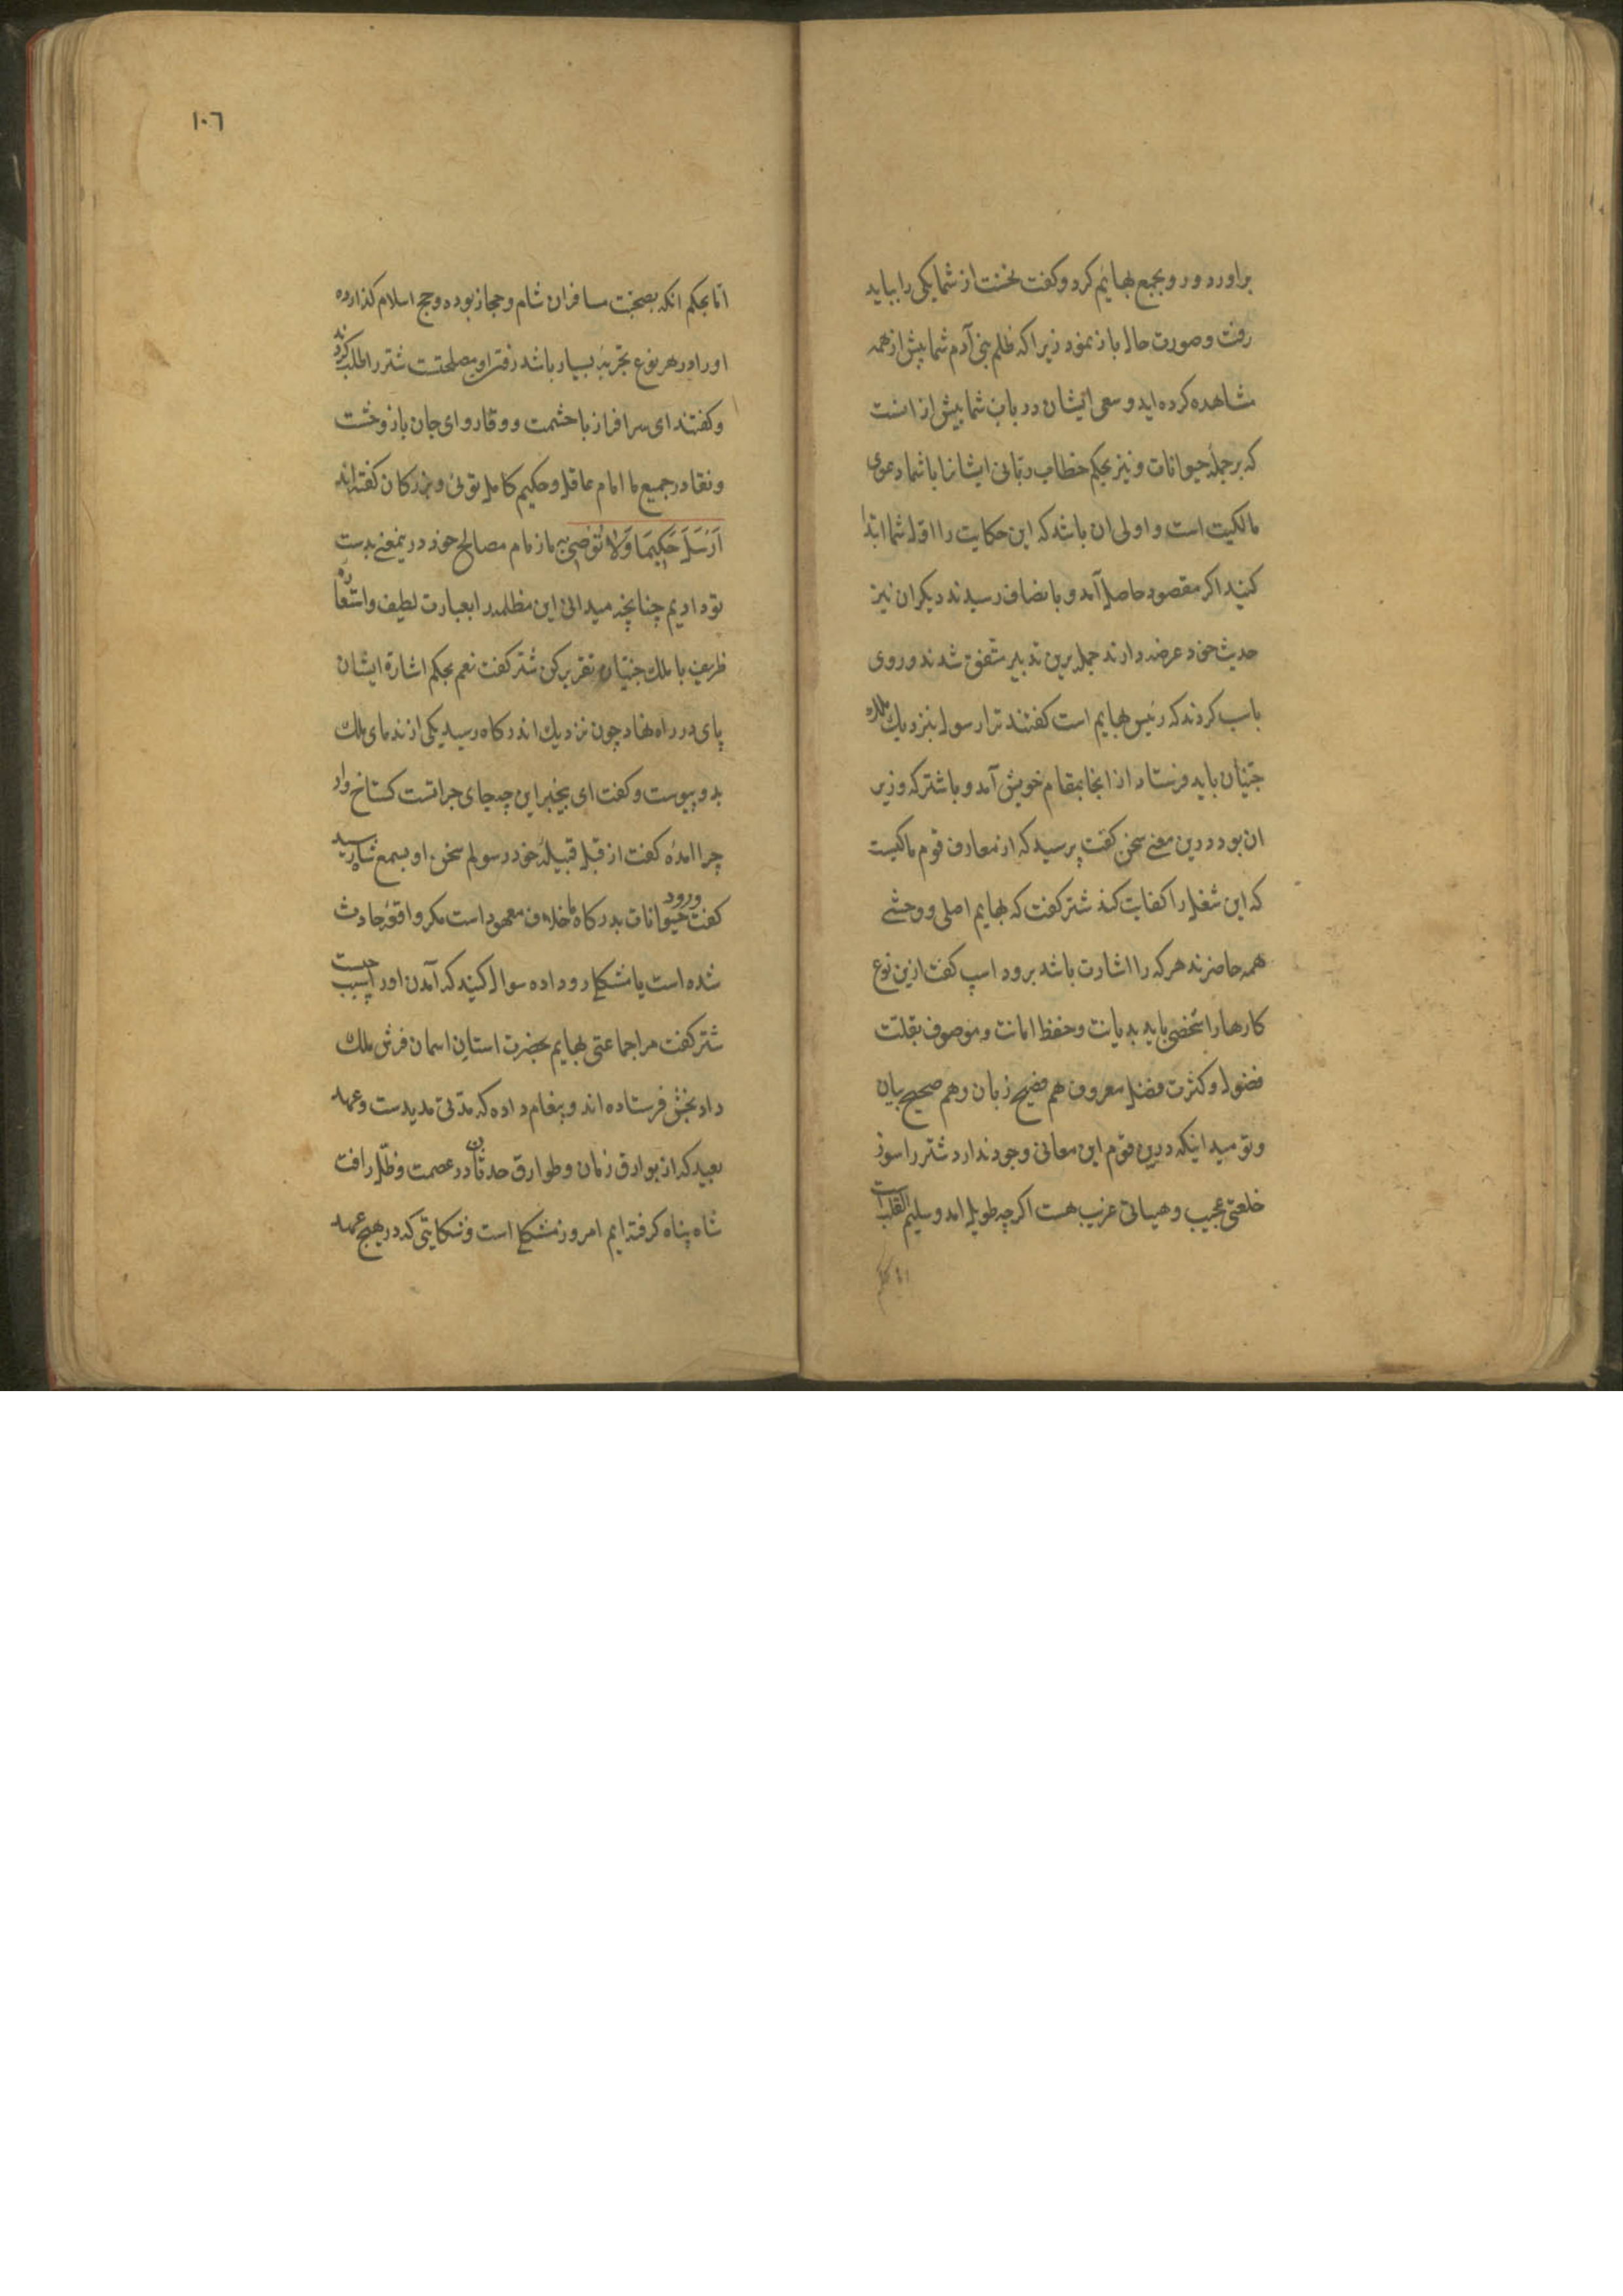 براورد و روبجمع بهایم کرد و کفت نخست از شما یکی را بباید
رفت و صورت حال باز نمود زیرا که ظلم بنی آدم شما بیش از همه
مشاهده کرده اید و سعی ایشان در باب شما بیش از انست
که بر جملهٔ حیوانات و نیز بحکم خطاب ربانی ایشانرا با شما دعوی
مالکیت است و اولی ان باشد که این حکایت را اول شما ابتدا
کنید اکر مقصود حاصل آمد و بانصاف رسیدند دیکران نیز
حدیث خود عرضه دارند جمله برین تدبیر متفق شدند و روی
باسب کردند که رئیس بهایم است کفتند ترا رسول بنزدیك ملك
جنیان باید فرستاد از انجا بمقام خویش آمد و با شتر که وزیر
ان بود درین معنی سخن کفت پرسید که از معارف قوم ما کیست
که این شغل را کفایت کند شتر کفت که بهایم اصلی و وحشی
همه حاضرند هر که را اشارت باشد برود اسپ کفت ازین نوع
کارها را شخصی باید بدیانت و حفظ امانت و موصوف بقلت
فضول و کثرت فضل معروف هم فصیح زبان و هم صحیح بیان
و تو میدانیکه درین قوم این معانی وجود ندارد شتر را سوز
خلعتی عجیب و هیاتی غریب هست اکرچه طویل امد و سلیم القلب است
اما بحکم
١٠٦
اما بحکم انکه بصحبت مسافران شام و حجاز بوده و حج اسلام کذارده
او را در هر نوع تجربه بسیار باشد رفتن او مصلحتست شتر را طلب کردند
و کفتند ای سرافراز با حشمت و وقار و ای جان باز وحشت
و نقار در جمیع ما امام عاقل و حکیم کامل توئی و بزرکان کفته اند
اَرْسِلْ حَکِیمًا وَلَا تُوْصِهِ ما زمام مصالح خود درینمعنی بدست
تو دادیم چنانچه میدانی این مظلمه را بعبارت لطیف و استعاره
ظریف با ملك جنیان تقریر کن شتر کفت نعم بحکم اشارة ایشان
پای در راه نهاد چون نزدیك اندرکاه رسید یکی از ندمای ملك
بدو پیوست و کفت ای بیخبر این چه جای جراتست کستاخ وار
چرا امدهٔ کفت از قبل قبیلهٔ خود رسولم سخن او بسمع شاه رسید
کفت ورود حیوانات بدرکاه ما خلاف معهود است مکر واقعهٔ حادث
شده است یا مشکلی روداده سوال کنید که آمدن او را سبب چیست
شتر کفت مرا جماعتی بهایم بحضرت استان اسمان فرش ملك
دادبخش فرستاده اند و پیغام داده که مدتی مدیدست و عهد
بعید که از بوارق زمان و طوارق حدثان در عصمت و ظل رافت
شاه پناه کرفته ایم امروز مشکلی است و شکایتی که در هیچ عهد